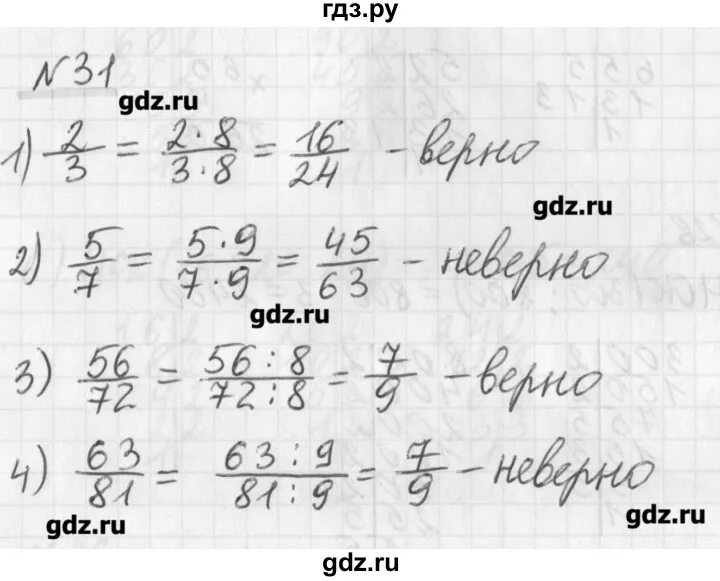 гдз.ру
№31
gdz.ru
1) 2/3 = 2·8/3·8 = 16/24 - верно
gdz.ru
2) 5/7 = 5·9/7·9 = 45/63 - неверно
gdz.ru
3) 56/72 = 56:8/72:8 = 7/9 - верно
gdz.ru
4) 63/81 = 63:9/81:9 = 7/9 - неверно
gdz.ru
gdz.ru
gdz.ru